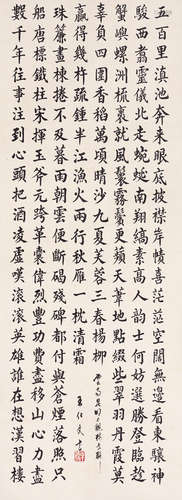 五百里滇池奔來眼底披襟岸幘喜茫茫空闊無邊看東驤神
駿西翥靈儀北走蜿蜒南翔縞素高人韻士何妨選勝登臨趁
蟹嶼螺洲梳裹就風鬟霧鬢更蘋天葦地點綴些翠羽丹霞莫
辜負四圍香稻萬頃晴沙九夏芙蓉三春楊柳
數千年往事注到心頭把酒凌虛嘆滾滾英雄誰在想漢習樓
船唐標鐵柱宋揮玉斧元跨革囊偉烈豐功費盡移山心力盡
珠簾畫棟捲不及暮雨朝雲便斷碣殘碑都付與蒼煙落照只
贏得幾杵疏鐘半江漁火兩行秋雁一枕清霜